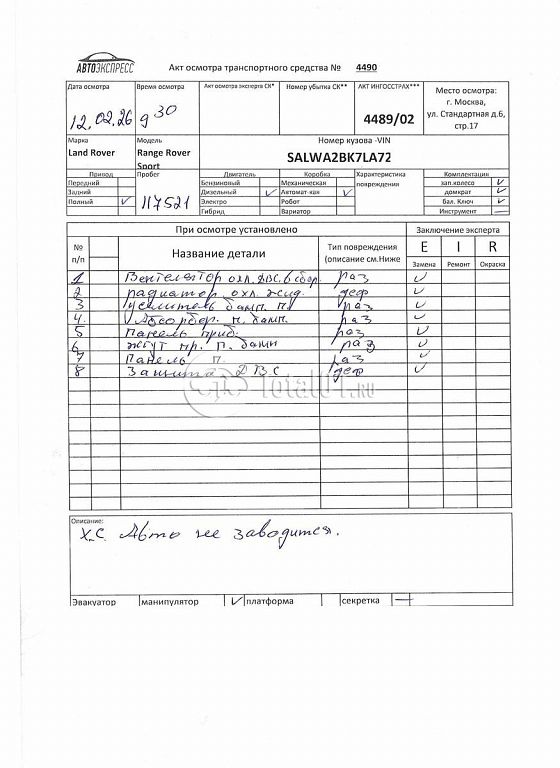 АВТОЭКСПРЕСС
Акт осмотра транспортного средства № 4490
Дата осмотра
12.02.26
Время осмотра
9 30
Акт осмотра эксперта СК*
Номер убытка СК**
АКТ ИНГОССТРАХ***
4489/02
Место осмотра:
г. Москва,
ул. Стандартная д.6,
стр.17
Марка
Land Rover
Модель
Range Rover
Sport
Номер кузова -VIN
SALWA2BK7LA72
Привод
Передний
Задний
Полный ✓
Пробег
117521
Двигатель
Бензиновый
Дизельный ✓
Электро
Гибрид
Коробка
Механическая
Автомат-кая ✓
Робот
Вариатор
Характеристика
повреждения
Комплектация
зап.колесо ✓
домкрат ✓
бал. Ключ ✓
Инструмент —
При осмотре установлено
Заключение эксперта
№
п/п
Название детали
Тип повреждения
(описание см.Ниже
E I R
Замена Ремонт Окраска
1 Вентелятор охл. ДВС в сбор. раз ✓
2 радиатор охл. жид. деф ✓
3 усилитель бамп. п. раз ✓
4. Абсорбер. п. бамп. раз ✓
5 Панель приб. раз ✓
6 жгут пр. п. бамп раз ✓
7 Панель п. раз ✓
8 Защита ДВС деф ✓
Total01.RU
Описание:
Х.С. Авто не заводится.
Эвакуатор манипулятор ✓ платформа секретка —